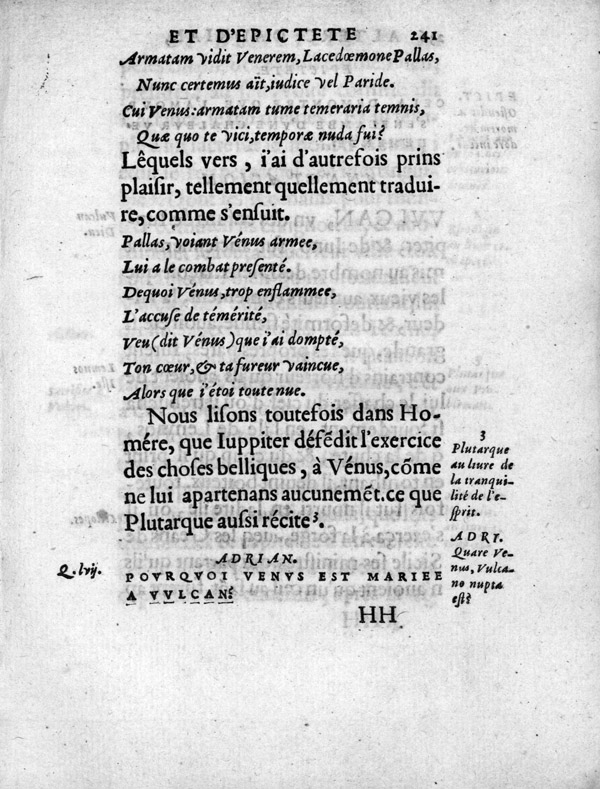 ET D'EPICTETE 241
Armatam vidit Venerem, Lacedœmone Pallas,
Nunc certemus aït, iudice vel Paride.
Cui Venus: armatam tu me temeraria temnis,
Quæ quo te vici, temporæ nuda fui?
Lêquels vers, i'ai d'autrefois prins
plaisir, tellement quellement tradui-
re, comme s'ensuit.
Pallas, voiant Vénus armee,
Lui a le combat presenté.
Dequoi Vénus, trop enflammee,
L'accuse de témérité,
Veu (dit Vénus) que i'ai dompté,
Ton cœur, & ta fureur vaincue,
Alors que i'étoi toute nue.
Nous lisons toutefois dans Ho-
mére, que Iuppiter défẽdit l'exercice
des choses belliques, à Vénus, cõme
ne lui apartenans aucunemẽt. ce que
Plutarque aussi récite³.
3
Plutarque
au liure de
la tranqui-
lité de l'e-
sprit.
ADRIAN.
Q. lvij.
POVRQVOI VENVS EST MARIEE
A VVLCAN?
ADRI.
Quare Ve-
nus, Vulca-
no nupta
est?
HH